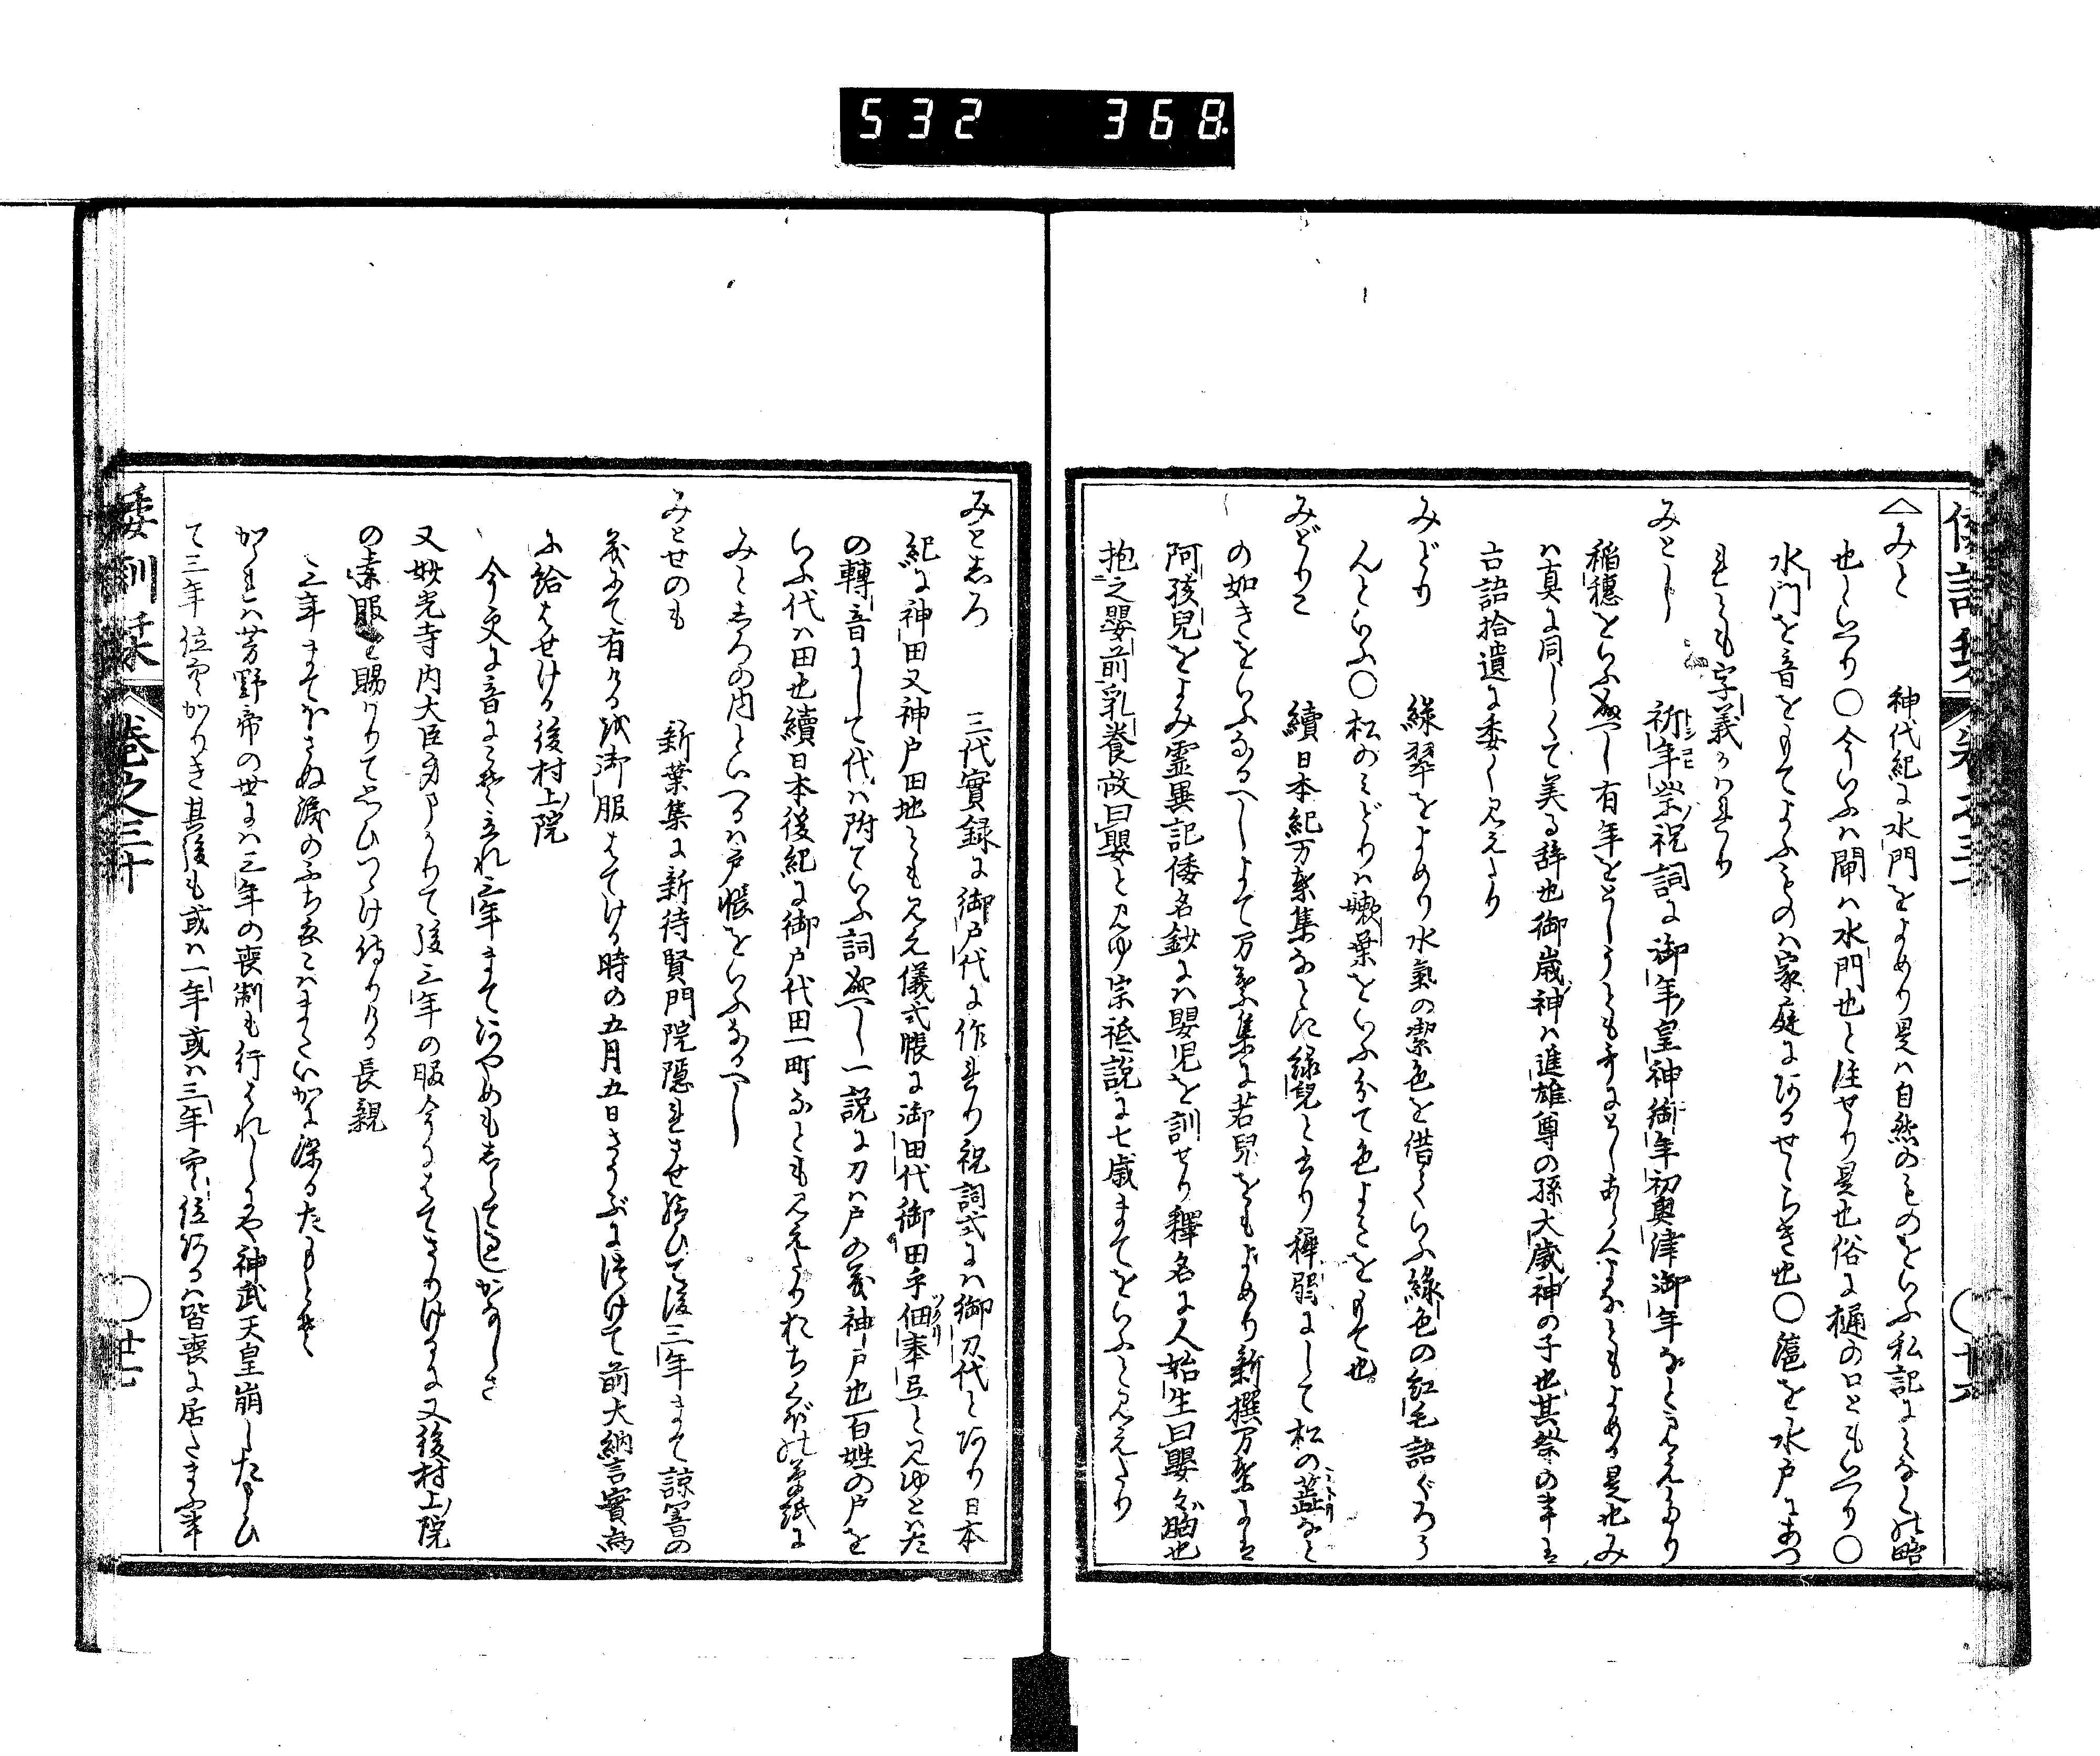 532 368
みと 神代紀に水門をよめり是ハ自然のものをいふ私記にみなとの略
也といへり○今いふハ閘ハ水門也と注せり是也俗に樋の口ともいへり○
水門を音をもてよふものハ家庭にあるせゝらき也○滬を水戸にあつ
れとも字義ハれり
みとし 祈年祭祝詞に御年皇神御年初奥津御年なと見えたり
稲穂をいふ成へし有年をとしうとも年にとしあらへなともよめる是也み
ハ真に同しくて美る辞也御歳神ハ進雄尊の孫大歳神の子也其祭の事は
古語拾遺に委く見えたり
みどり 緑翠をよめり水氣の潔色を借ていふ緑色の紅毛語ぐろう
んといふ○松のみどりハ嫩葉をいふ分て色よきをもて也
みどりこ 續日本紀万葉集なとに緑兒と書り稺弱にして松の蘂なと
の如きをいふなるへしよて万葉集に若兒をもよめり新撰万葉には
阿孩兒をよみ霊異記倭名鈔にハ嬰児を訓せり釋名に人始生曰嬰ガ胸也
抱之嬰前乳養故曰嬰と見ゆ宗祗説に七歳まてをいふと見えたり
みとしろ 三代實録に御戸代に作れり祝詞式にハ御刀代とあり日本
紀に神田又神戸田地とも見え儀式帳に御田代御田乎佃奉弖と見ゆとハた
の轉音にして代ハ附ていふ詞成へし一説に刀ハ戸の義神戸也百姓の戸を
いふ代ハ田也續日本後紀に御戸代田一町なとも見えたりおちくぼの草紙に
みとしろの内といへるハ戸帳をいふなるへし
みとせのも 新葉集に新待賢門院隠れさせ給ひて後三年まて諒闇の
義にて有ける御服はてける時の五月五日さうぶに添けて前大納言實為
に給はせける後村上院
今更に音にそ立れ三年まてあやめもしらて過しかなしさ
又妙光寺内大臣身まかりて後三年の服今はてさりけるに又後村上院
の素服を賜りて思ひつゝけ侍りける長親
三年まてほさぬ涙のふち衣こハまたいかに深るたもとそ
かゝれハ芳野帝の世にハ三年の喪制も行はれしにや神武天皇崩したまひ
て三年位空かりき其後も或ハ一年或ハ三年空位あるハ皆喪に居たまふ事
倭訓栞 巻之三十 ○廿七